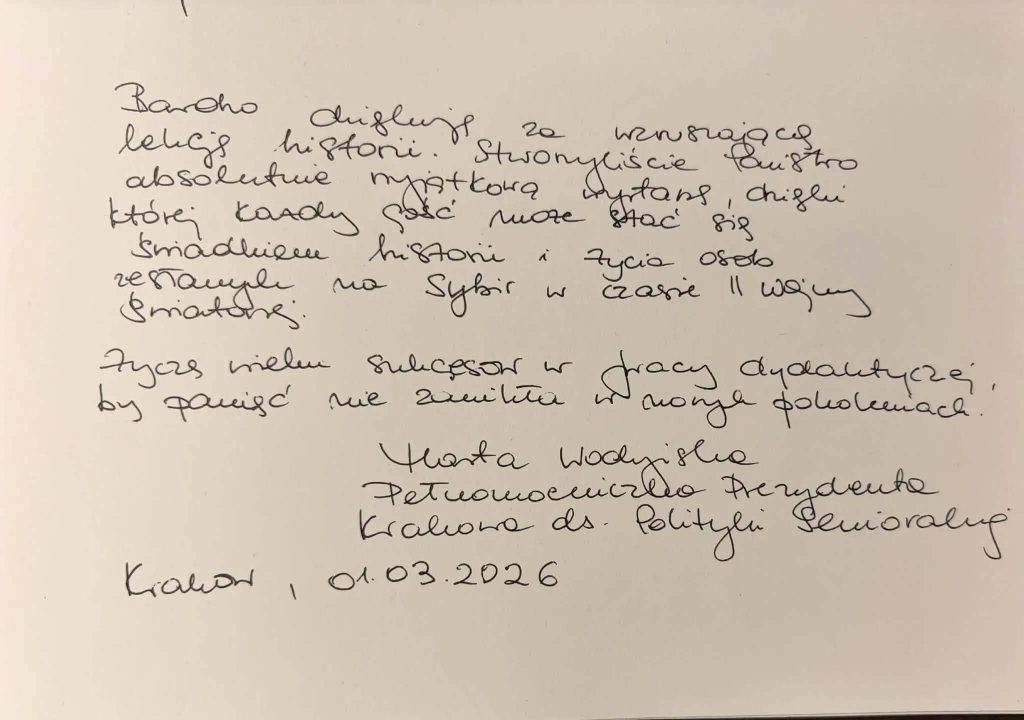 Bardzo dziękuję za wzruszającą
lekcję historii. Stworzyliście Państwo
absolutnie wyjątkową wystawę, dzięki
której każdy gość może stać się
świadkiem historii i życia osób
zesłanych na Sybir w czasie II wojny
światowej.
Życzę wielu sukcesów w pracy dydaktycznej,
by pamięć nie znikła w nowych pokoleniach.
Marta
Pełnomocniczka Prezydenta
Krakowa ds. Polityki Senioralnej
Kraków, 01.03.2026